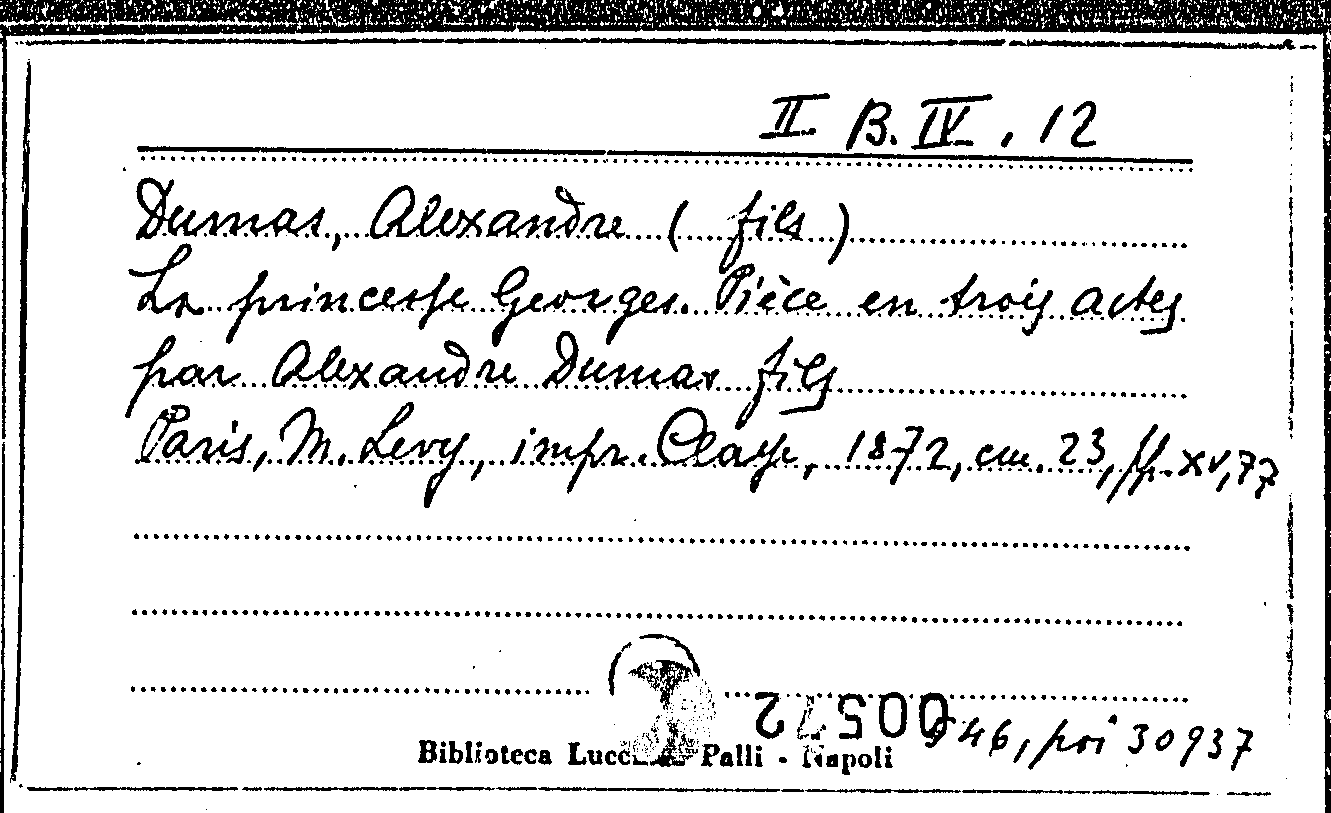 II B. IV. 12
Dumas, Alexandre (fils)
La princesse Georges. Pièce en trois actes
par Alexandre Dumas fils
Paris, M. Levy, impr. Claye, 1872, cm. 23, pp. XV, 77
946, poi 30937
Biblioteca Lucchesi Palli - Napoli